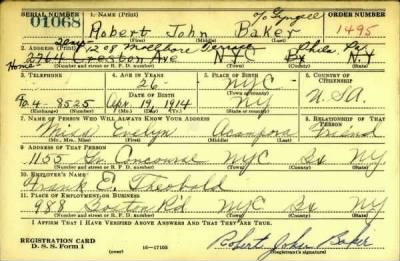 SERIAL NUMBER 1. NAME (Print) c/o Gyngell ORDER NUMBER
01068 Robert John Baker 1495
(First) (Middle) (Last)
1208 Terrace Phila Pa
2. ADDRESS (Print)
Home 2764 Creston Ave NYC Bx N.Y.
(Number and street or R. F. D. number) (Town) (County) (State)
3. TELEPHONE 4. AGE IN YEARS 5. PLACE OF BIRTH 6. COUNTRY OF CITIZENSHIP
26 NYC
DATE OF BIRTH (Town or county)
Fo. 4-8525 Apr. 19, 1914 NY U.S.A.
(Exchange) (Number) (Mo.) (Day) (Yr.) (State or country)
7. NAME OF PERSON WHO WILL ALWAYS KNOW YOUR ADDRESS 8. RELATIONSHIP OF THAT PERSON
Miss Evelyn Acampora Friend
(Mr., Mrs., Miss) (First) (Middle) (Last)
9. ADDRESS OF THAT PERSON
1155 Gr. Concourse NYC Bx NY.
(Number and street or R. F. D. number) (Town) (County) (State)
10. EMPLOYER'S NAME
Frank E. Theobald
11. PLACE OF EMPLOYMENT OR BUSINESS
988 Boston Rd NYC Bx NY.
(Number and street or R. F. D. number) (Town) (County) (State)
I AFFIRM THAT I HAVE VERIFIED ABOVE ANSWERS AND THAT THEY ARE TRUE.
REGISTRATION CARD
D. S. S. Form 1 (over) 16—17105 Robert John Baker
(Registrant's signature)